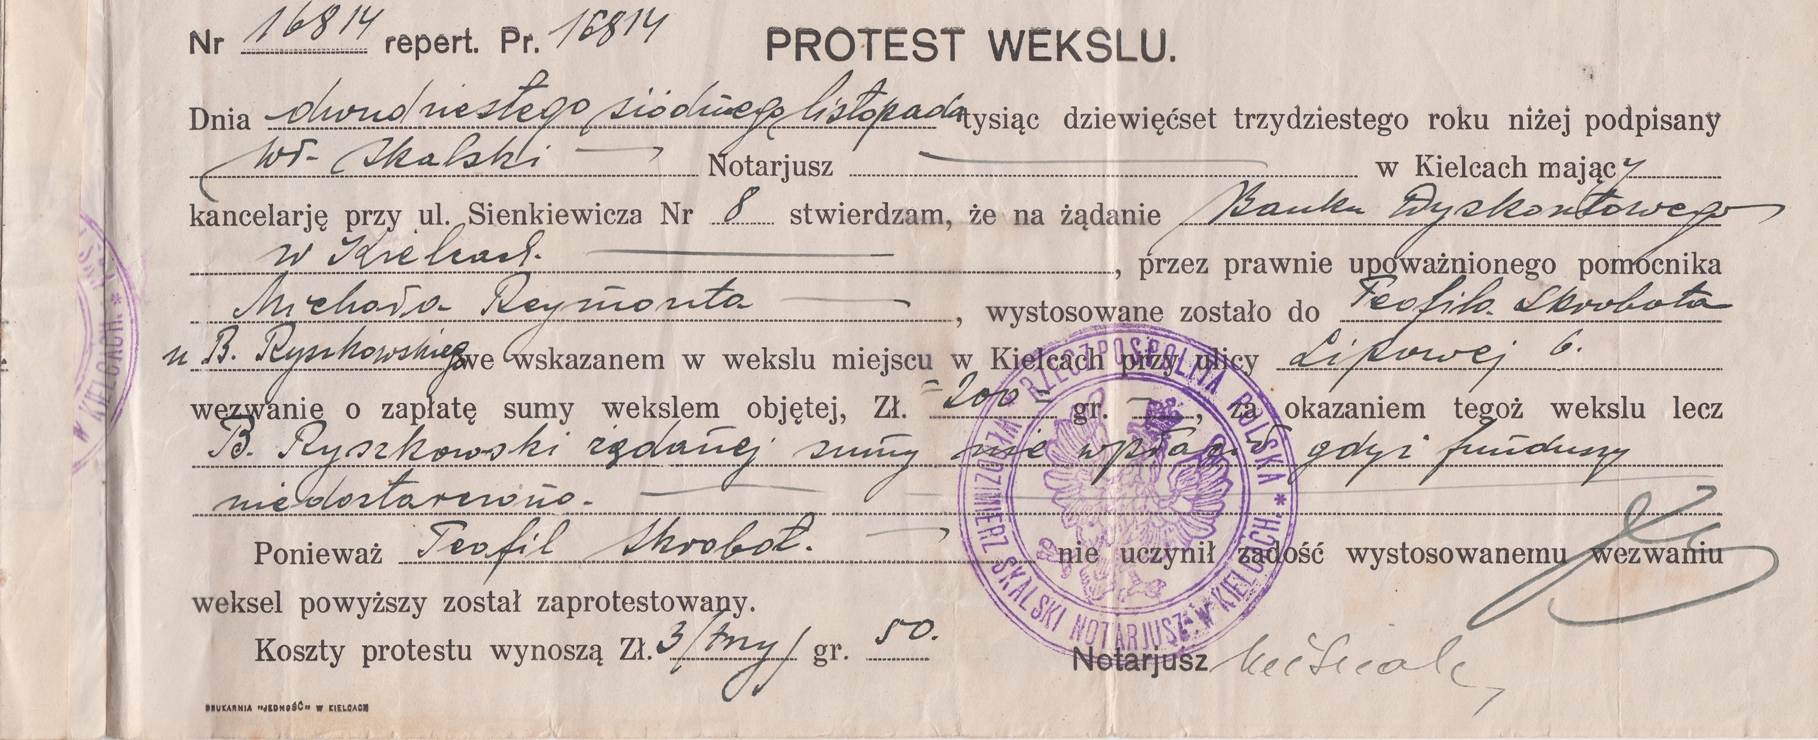 Nr 16814 repert. Pr. 16814 PROTEST WEKSLU.
Dnia dwudziestego siódmego listopada tysiąc dziewięćset trzydziestego roku niżej podpisany
Wł. Skalski Notarjusz w Kielcach mający
kancelarję przy ul. Sienkiewicza Nr 8 stwierdzam, że na żądanie Banku Dyskontowego
w Kielcach. , przez prawnie upoważnionego pomocnika
Michała Reymonta , wystosowane zostało do Teofila Skrobota
u B. Ryszkowskiego we wskazanem w wekslu miejscu w Kielcach przy ulicy Lipowej 6.
wezwanie o zapłatę sumy wekslem objętej, Zł. =200= gr. —, za okazaniem tegoż wekslu lecz
B. Ryszkowski żądanej sumy nie wpłacił gdyż funduszy
niedostarczono.
Ponieważ Teofil Skrobot. nie uczynił zadość wystosowanemu wezwaniu
weksel powyższy został zaprotestowany.
Koszty protestu wynoszą Zł. 3/trzy/ gr. 50.
Notarjusz
DRUKARNIA "JEDNOŚĆ" W KIELCACH
RZECZPOSPOLITA POLSKA * WŁODZIMIERZ SKALSKI NOTARJUSZ W KIELCACH. *
W KIELCACH. *